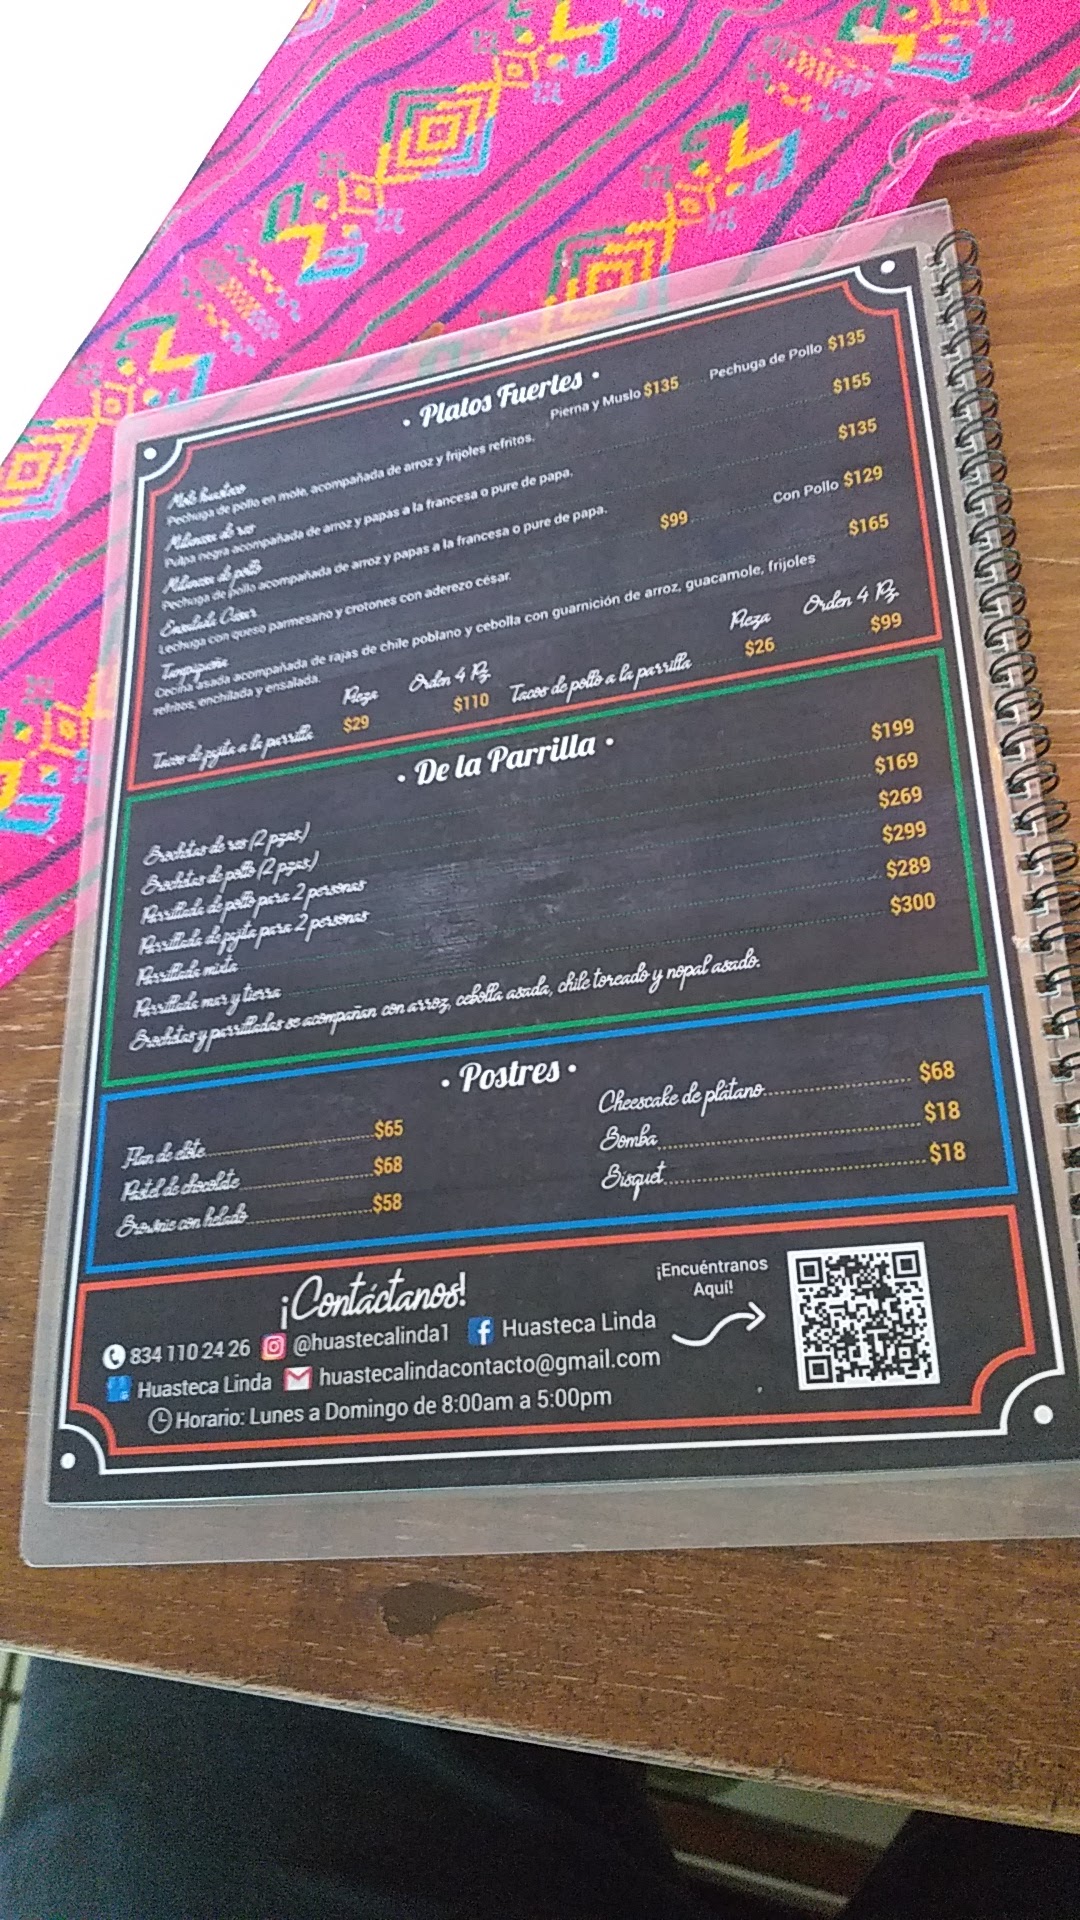 • Platos Fuertes •
Mole huasteco Pierna y Muslo $135 Pechuga de Pollo $135
Pechuga de pollo en mole, acompañada de arroz y frijoles refritos.
Milanesa de res $155
Pulpa negra acompañada de arroz y papas a la francesa o pure de papa.
Milanesa de pollo $135
Pechuga de pollo acompañada de arroz y papas a la francesa o pure de papa.
Ensalada César $99 Con Pollo $129
Lechuga con queso parmesano y crotones con aderezo césar.
Tampiqueña $165
Cecina asada acompañada de rajas de chile poblano y cebolla con guarnición de arroz, guacamole, frijoles
refritos, enchilada y ensalada.
Pieza Orden 4 Pz Pieza Orden 4 Pz
Tacos de fajita a la parrilla $29 $110 Tacos de pollo a la parrilla $26 $99
• De la Parrilla •
Brochetas de res (2 pzas) $199
Brochetas de pollo (2 pzas) $169
Parrillada de pollo para 2 personas $269
Parrillada de fajita para 2 personas $299
Parrillada mixta $289
Parrillada mar y tierra $300
Brochetas y parrilladas se acompañan con arroz, cebolla asada, chile toreado y nopal asado.
• Postres •
Flan de elote $65
Pastel de chocolate $68
Brownie con helado $58
Cheescake de plátano $68
Bomba $18
Bisquet $18
¡Contáctanos!
834 110 24 26 @huastecalinda1 Huasteca Linda
Huasteca Linda huastecalindacontacto@gmail.com
Horario: Lunes a Domingo de 8:00am a 5:00pm
¡Encuéntranos
Aquí!